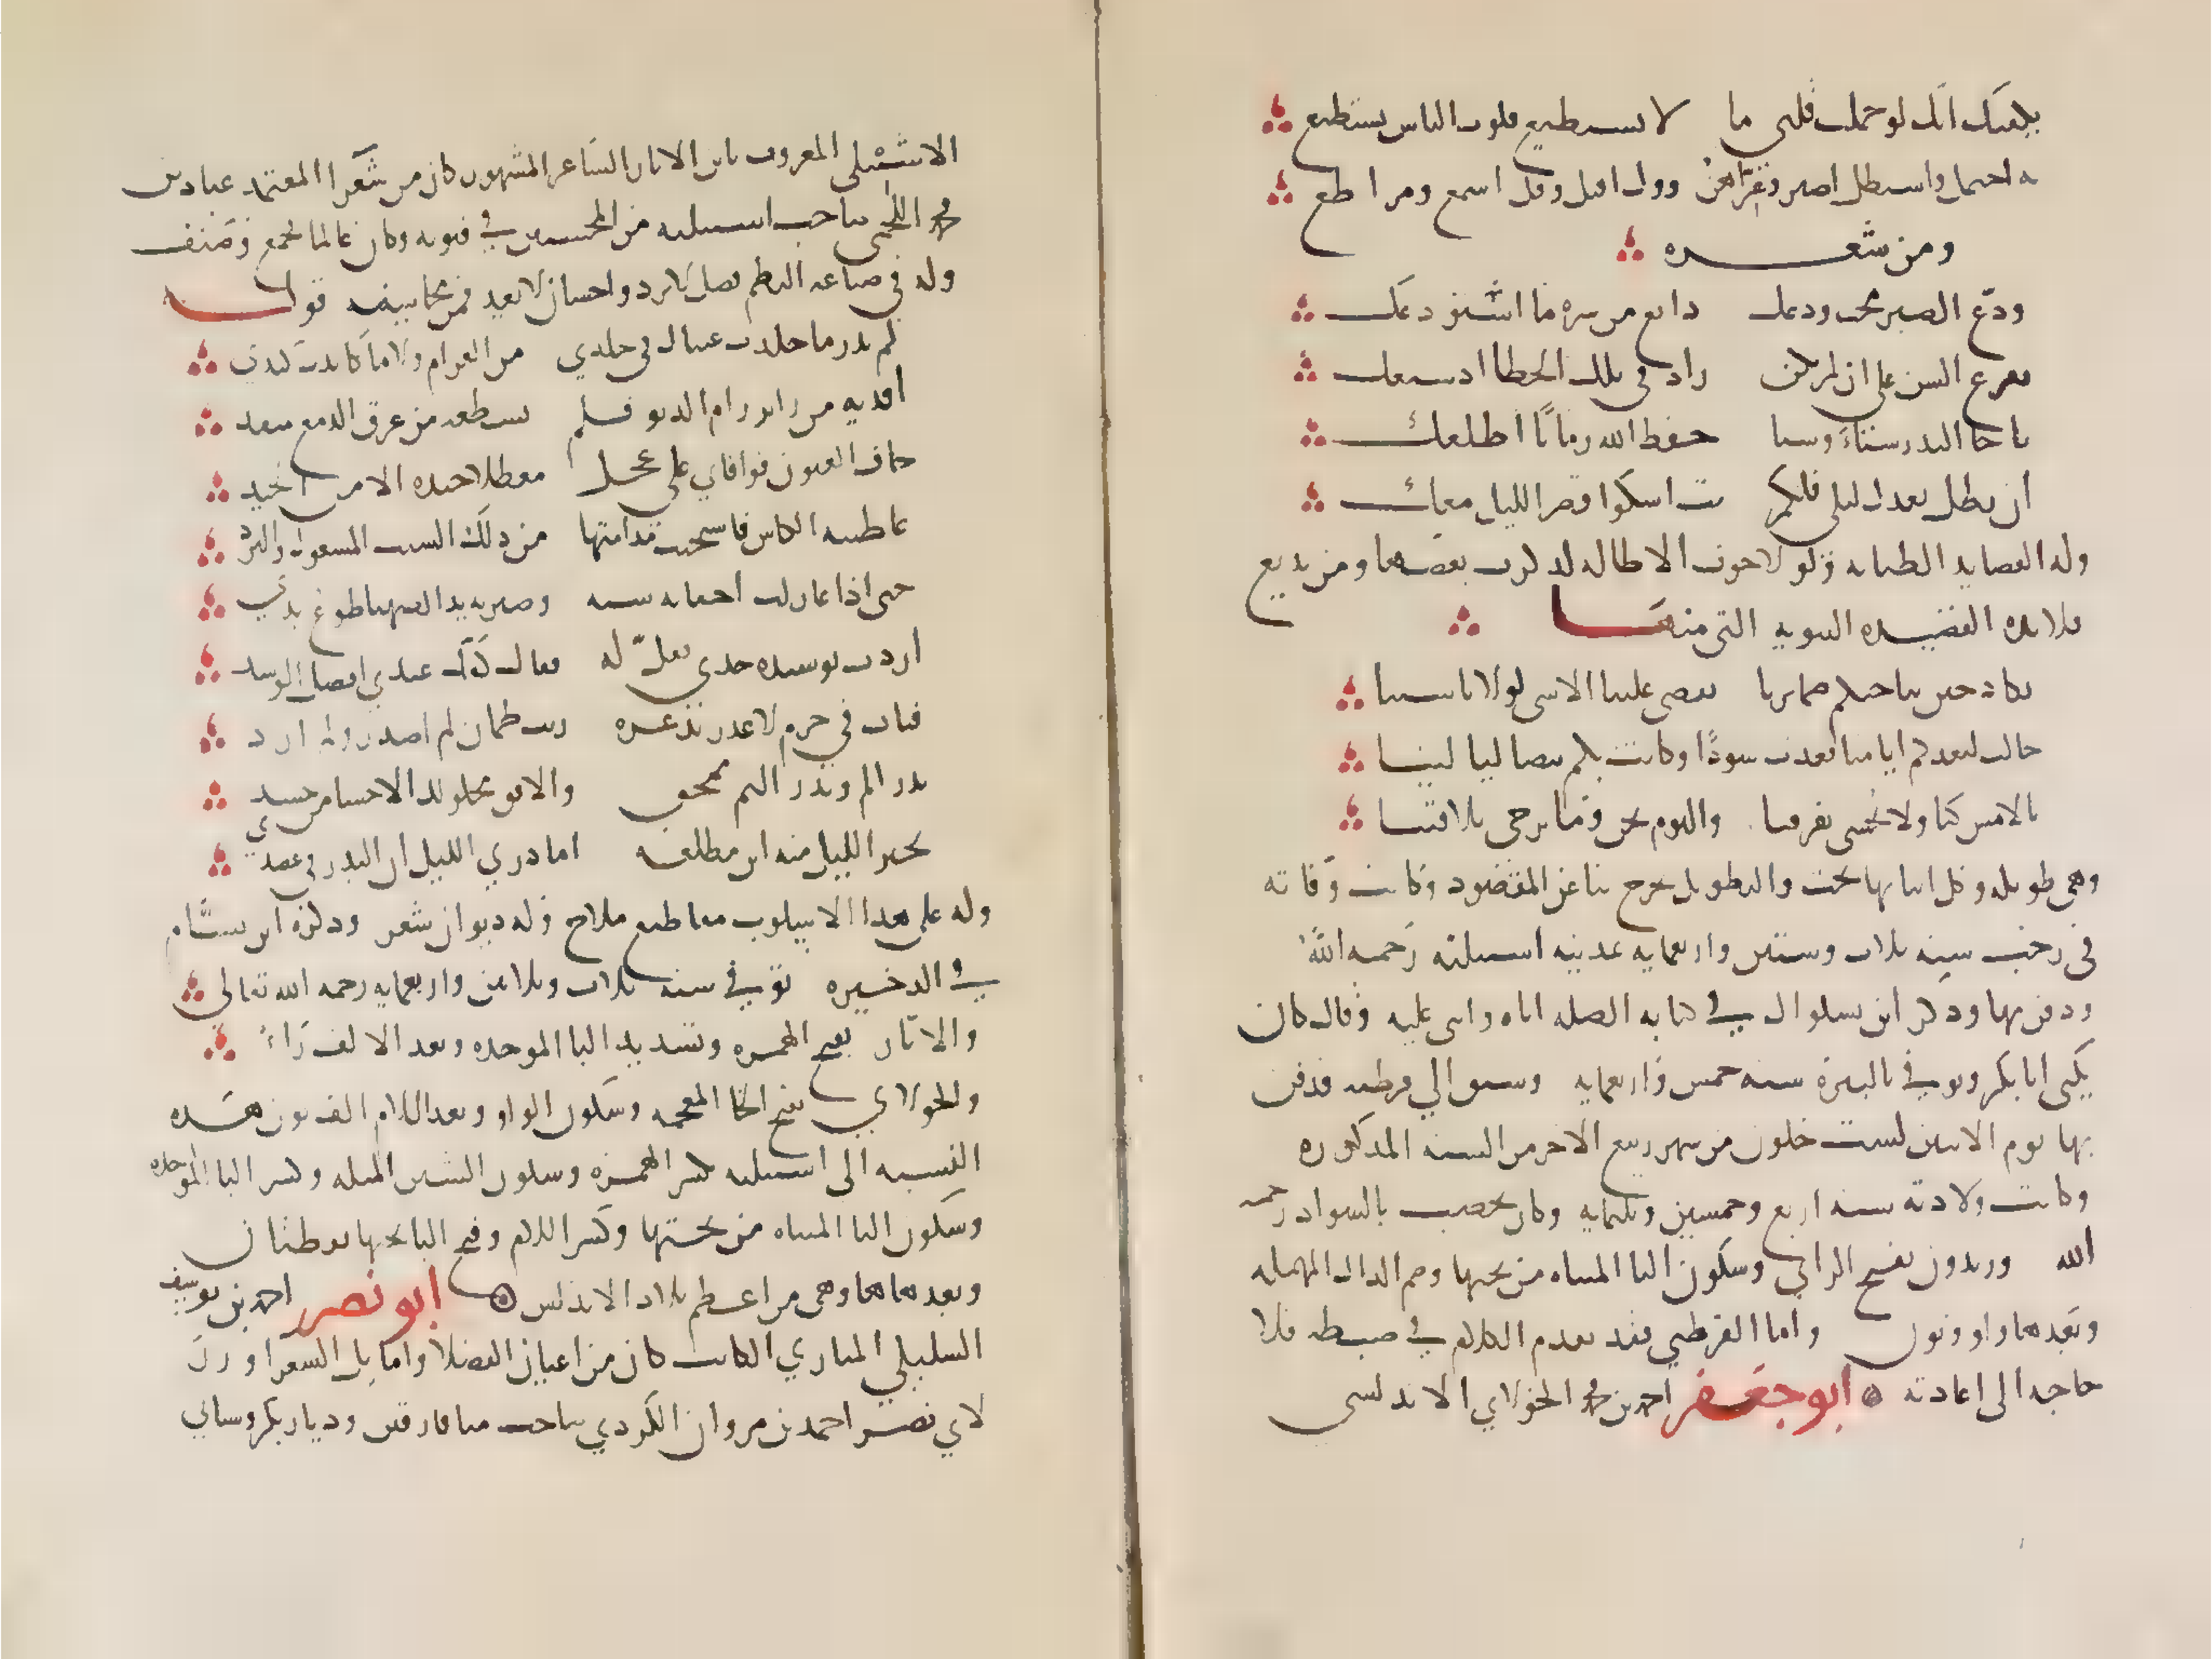 يكفيك انك لو حملت قلبي ما لا تستطيع قلوب الناس يستطع
ته احتمل واستطل اصبر وعز اهن وول اقبل وقل اسمع ومر اطع
ومن شعره
ودّع الصبر محب ودعك ذايع من سره ما استودعك
يقرع السن على ان لم يكن زاد في تلك الخطا اذ شيعك
يا اخا البدر سناء وسنا حفظ الله زمانا اطلعك
ان يطل بعدك ليلي فلكم بت اشكوا قصر الليل معك
وله القصايد الطنانه ولولا خوف الاطاله لذكرت بعضها ومن بديع
قلايده القصيده النونيه التي منها
نكاد حين تناجيكم ضمايرنا يقضي علينا الاسى لولا تاسينا
حالت لبعدكم ايامنا فغدت سودا وكانت بكم بيضا ليالينا
بالامس كنا ولا نخشى تفرقنا واليوم نحن وما يرجى تلاقينا
وهي طويله وكل ابياتها نخب والتطويل يخرج بنا عن المقصود وكانت وفاته
في رجب سنه ثلاث وستين واربعمايه بمدينه اشبيليه رحمه الله
ودفن بها وذكر ابن بشكوال في كتابه الصله اباه واثنى عليه وقال كان
يكنى ابا بكر وتوفي بالبيره سنه خمس واربعمايه وسيق الي قرطبه فدفن
بها يوم الاثنين لست خلون من شهر ربيع الاخر من السنه المذكوره
وكانت ولادته سنه اربع وخمسين وثلثمايه وكان يخضب بالسواد رحمه
الله وزيدون بفتح الزاي وسكون اليا المثناه من تحتها وضم الدال المهمله
وبعدها واو ونون واما القرطبي فقد تقدم الكلام في ضبطه فلا
حاجه الى اعادته ابو جعفر احمد بن محمد الخولاني الاندلسي
الاشبيلي المعروف بابن الابار الشاعر المشهور كان من شعرا المعتمد عباد بن
محمد اللخمي صاحب اشبيليه من المحسنين في فنونه وكان عالما فجمع وصنف
وله في صناعه النظم فضل لا يرد واحسان لا يعد فمن محاسنه قوله
لم تدر ما خلدت عيناك في خلدي من الغرام ولا ما كابدت كبدي
افديه من زاير رام الدنو فلم يسطعه من غرق الدمع متقد
خاف العيون فوافاي على عجل معطلا جيده الا من الجيد
عاطيته الكاس فاستحيت مدامتها من ذلك الشنب المعسول والبرد
حتى اذا غازلت اجفانه سنه وصيرته يد الصهبا طوع يدي
اردت توسيده خدي وقل له فقال كفك عندي افضل الوسد
فبات في حرم لا غدر يذعره وبت ظمان لم اصدر ولم ارد
بدر الم وبدر التم ممحق والافق محلولك الارجا من حسد
تحير الليل منه اين مطلعه اما دري الليل ان البدر في عضدي
وله على هذا الاسلوب مقاطيع ملاح وله ديوان شعر وذكره ابن بسّام
في الذخيره توفي سنه ثلاث وثلاثين واربعمايه رحمه الله تعالى
والابّار بفتح الهمزه وتشديد البا الموحده وبعد الالف راء
والخولاني بفتح الخا المعجمه وسكون الواو وبعد اللام الف نون هذه
النسبه الى اشبيليه بكسر الهمزه وسكون الشين المثلثه وكسر البا الموحده
وسكون اليا المثناه من تحتها وكسر اللام وفتح اليا تحتها نقطتان
وبعدها ها وهي من اعظم بلاد الاندلس ابو نصر احمد بن يوسف
السليكي المنازي الكاتب كان من اعيان الفضلا واماثل الشعرا وزر
لابي نصر احمد بن مروان الكردي صاحب ميافارقين وديار بكر وسياتي